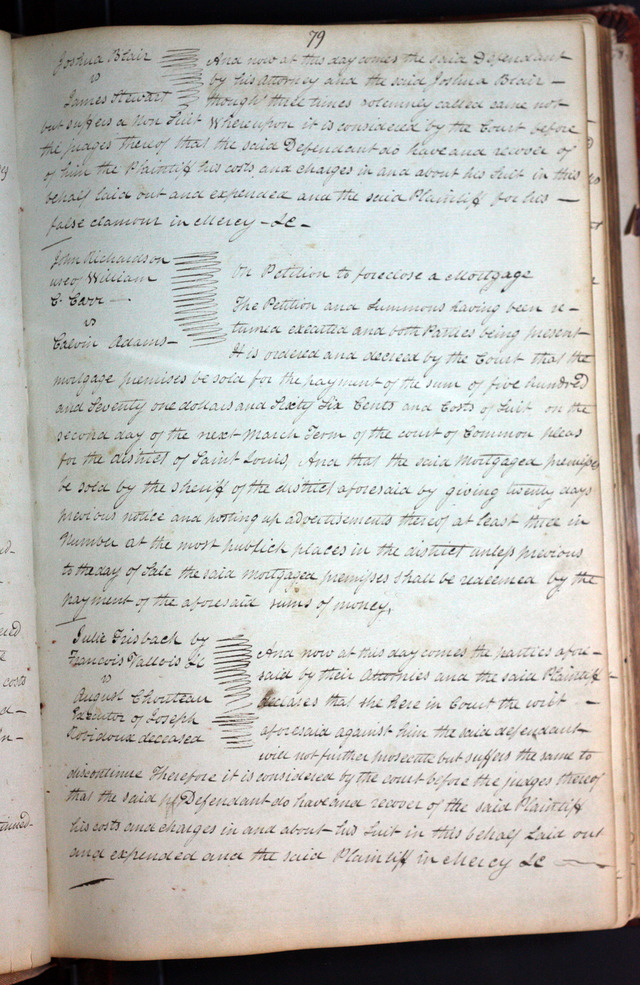 79
Joshua Blair
vs
James Stewart
And now at this day comes the said Defendant
by his attorney and the said Joshua Blair —
though three times solemnly called came not
but suffers a Non Suit Whereupon it is considered by the Court before
the judges thereof that the said Defendant do have and recover of
of him the Plaintiff his costs and charges in and about his Suit in this
behalf laid out and expended and the said Plaintiff for his —
false clamour in Mercy - &c -
John Richardson
use of William
C. Carr —
vs
Calvin Adams -
On Petition to foreclose a Mortgage
The Petition and Summons having been re-
turned executed and both Parties being present
It is ordered and decreed by the Court that the
mortgage premises be sold for the payment of the sum of five hundred
and Seventy one dollars and Sixty Six Cents and Costs of Suit on the
second day of the next March Term of the court of Common pleas
for the district of Saint Louis, And that the said Mortgaged premises
be sold by the sheriff of the district aforesaid by giving twenty days
previous notice and posting up advertisements thereof at least three in
Number at the most publick places in the district unless previous
to the day of Sale the said Mortgaged premisses shall be redeemed by the
payment of the aforesaid sums of money,
Julie Frisback by
Francois Vallois &c
vs
August Chouteau
Executor of Joseph
Robidoux deceased
And now at this day comes the parties afore-
said by their Attornies and the said Plaintiff
declares that she here in Court the writ —
aforesaid against him the said defendant
will not further prosecute but suffers the same to
discontinue Therefore it is considered by the court before the judges thereof
that the said Defendant do have and recover of the said Plaintiff
his costs and charges in and about his Suit in this behalf Laid out
and expended and the said Plaintiff in Mercy &c —